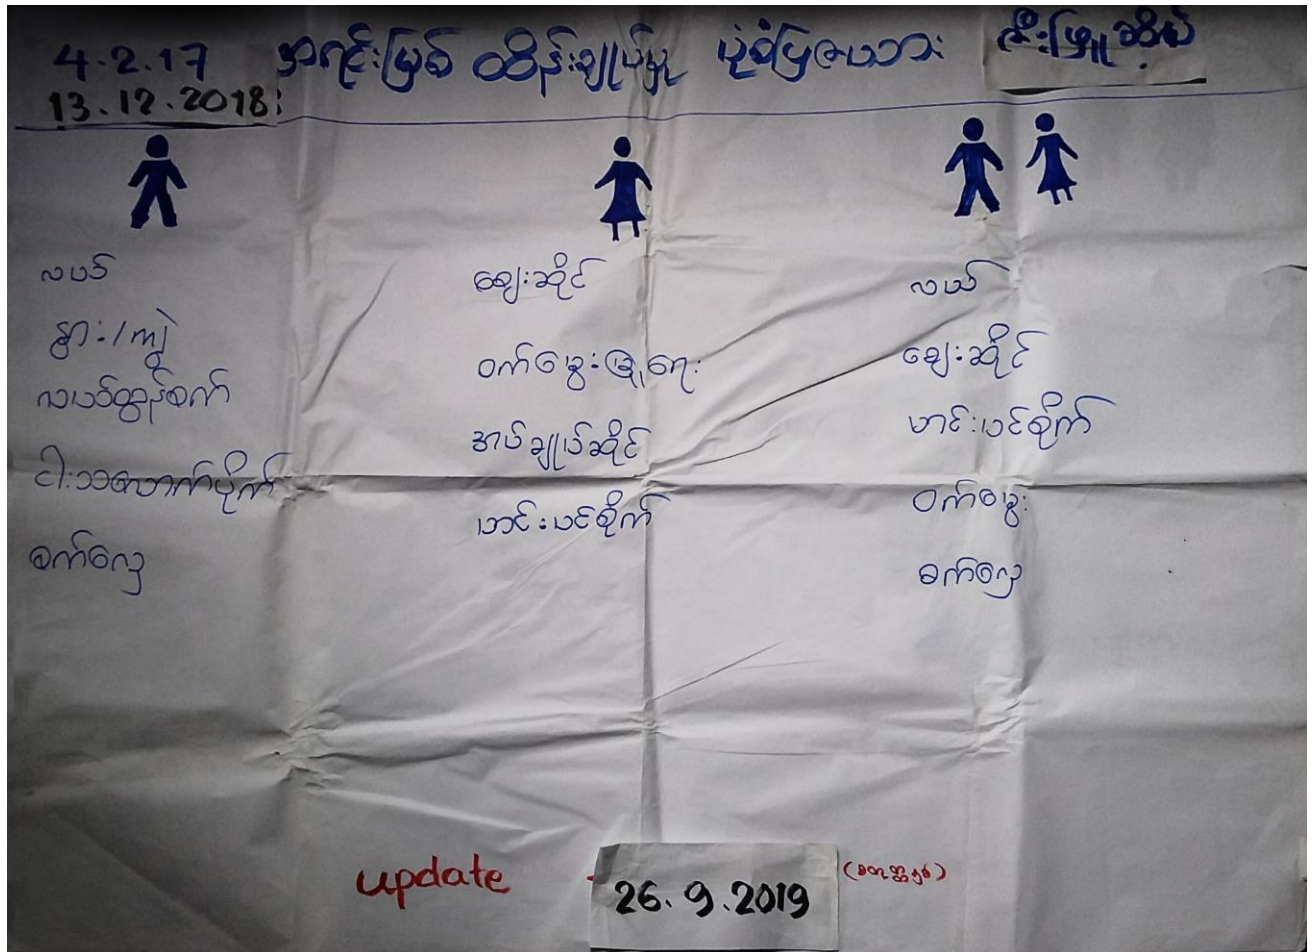 4.2.17 အရင်းမြစ် ထိန်းချုပ်မှု ပုံစံပြဇယား ဇီးဖြူဆိပ်
13.12.2018:
လယ်
နွား/ကျွဲ
လယ်ထွန်စက်
ငါးသလောက်ပိုက်
စက်လှေ
ဈေးဆိုင်
ဝက်မွေးမြူရေး
အပ်ချုပ်ဆိုင်
ဟင်းပင်စိုက်
လယ်
ဈေးဆိုင်
ဟင်းပင်စိုက်
ဝက်မွေး
စက်လှေ
update 26.9.2019